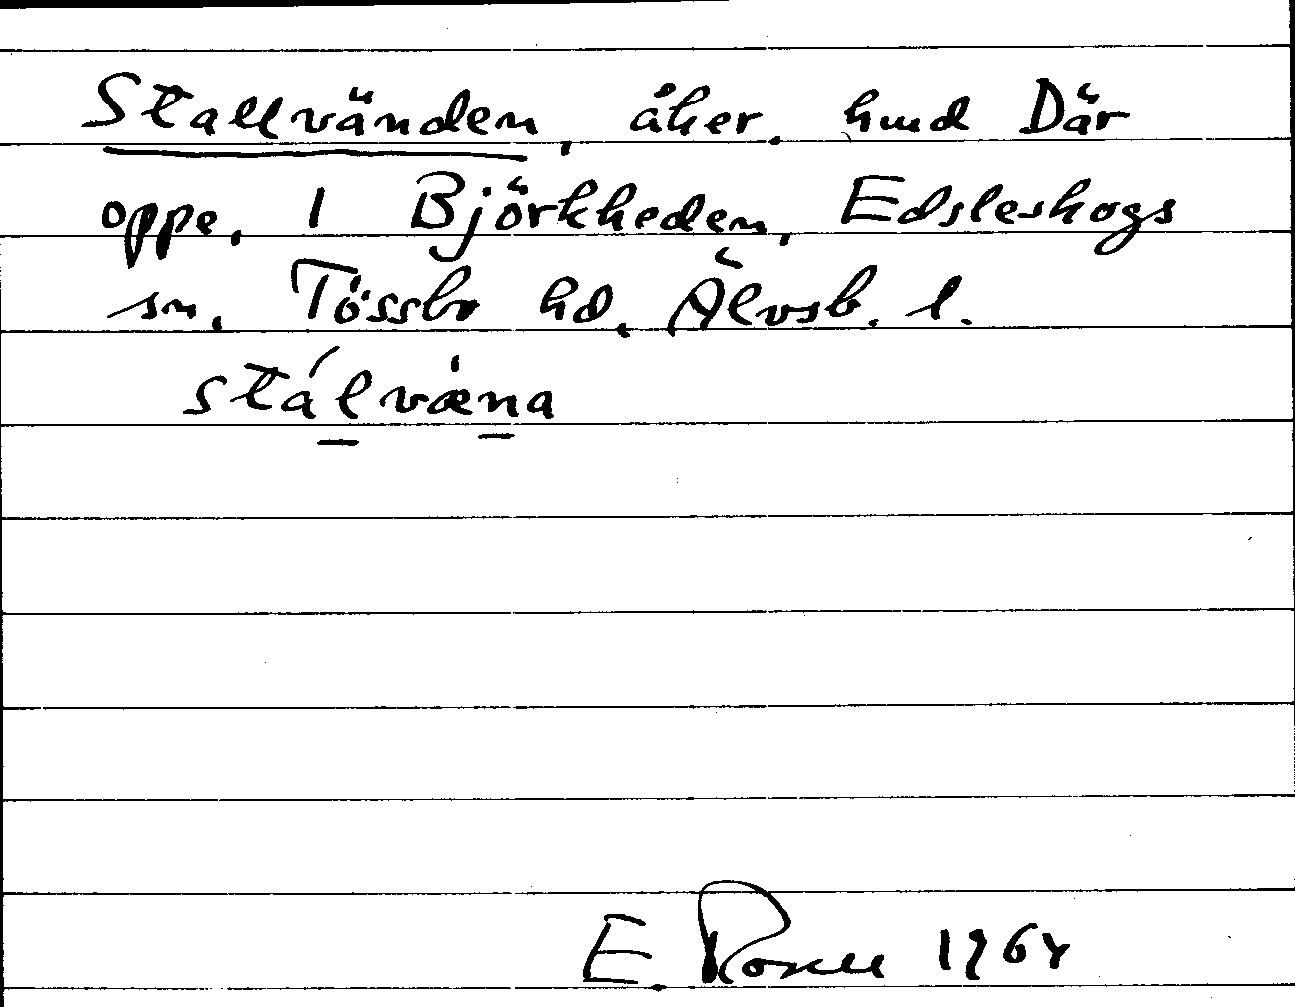 Stallvänden, åker. hmd Där
oppe, 1 Björkheden, Edsleskogs
sn, Tössbo hd, Älvsb. l.
stálvæ̍na
E. Rosell 1964